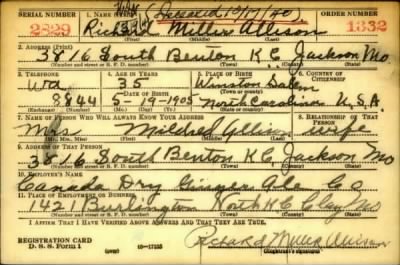 SERIAL NUMBER 1. NAME (Print) ORDER NUMBER
2829 Richard Miller Allison 1332
(First) (Middle) (Last)
2. ADDRESS (Print)
3816 South Benton K.C. Jackson Mo
(Number and street or R. F. D. number) (Town) (County) (State)
3. TELEPHONE 4. AGE IN YEARS 5. PLACE OF BIRTH 6. COUNTRY OF CITIZENSHIP
Wa 35 Winston Salem
DATE OF BIRTH (Town or county)
8844 5-19-1905 North Carolina U.S.A.
(Exchange) (Number) (Mo.) (Day) (Yr.) (State or country)
7. NAME OF PERSON WHO WILL ALWAYS KNOW YOUR ADDRESS 8. RELATIONSHIP OF THAT PERSON
Mrs Mildred Allison wife
(Mr., Mrs., Miss) (First) (Middle) (Last)
9. ADDRESS OF THAT PERSON
3816 South Benton K.C. Jackson Mo
(Number and street or R. F. D. number) (Town) (County) (State)
10. EMPLOYER'S NAME
Canada Dry Ginger Ale Co
11. PLACE OF EMPLOYMENT OR BUSINESS
1421 Burlington North K.C. Clay Mo
(Number and street or R. F. D. number) (Town) (County) (State)
I AFFIRM THAT I HAVE VERIFIED ABOVE ANSWERS AND THAT THEY ARE TRUE.
REGISTRATION CARD
D. S. S. Form 1 (over) 16-17105 Richard Miller Allison